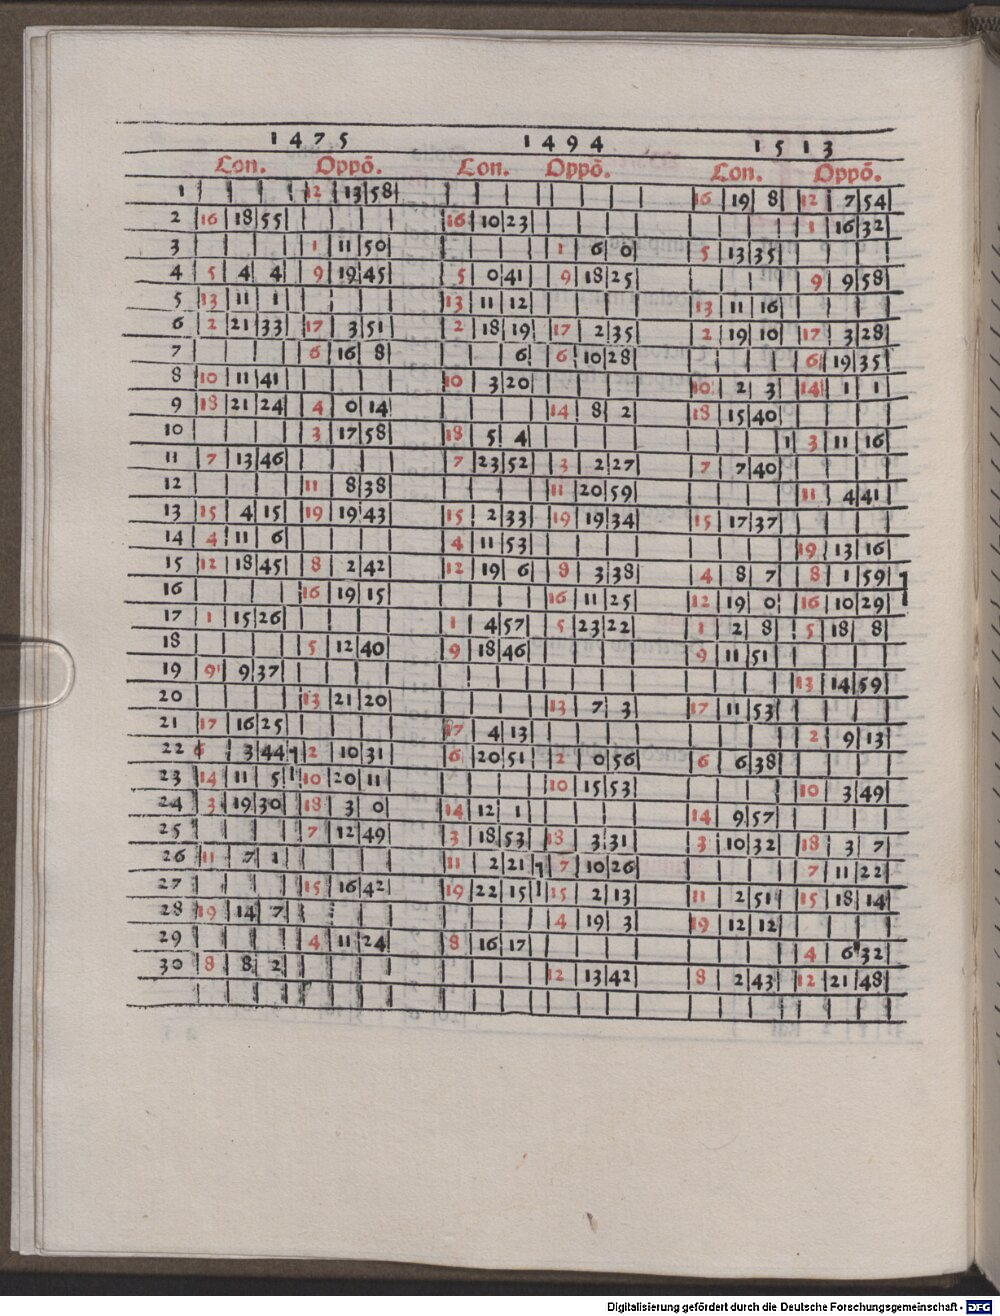 1475 1494 1513
Con. Oppō. Con. Oppō. Con. Oppō.
1 12 13 58 16 19 8 12 7 54
2 16 18 55 16 10 23 1 16 32
3 1 11 50 1 6 0 5 13 35
4 5 4 4 9 19 45 5 0 41 9 18 25 9 9 58
5 13 11 1 13 11 12 13 11 16
6 2 21 33 17 3 51 2 18 19 17 2 35 2 19 10 17 3 28
7 6 16 8 6 6 10 28 6 19 35
8 10 11 41 10 3 20 10 2 3 14 1 1
9 18 21 24 4 0 14 14 8 2 18 15 40
10 3 17 58 18 5 4 1 3 11 16
11 7 13 46 7 23 52 3 2 27 7 7 40
12 11 8 38 11 20 59 11 4 41
13 15 4 15 19 19 43 15 2 33 19 19 34 15 17 37
14 4 11 6 4 11 53 19 13 16
15 12 18 45 8 2 42 12 19 6 8 3 38 4 8 7 8 1 59
16 16 19 15 16 11 25 12 19 0 16 10 29
17 1 15 26 1 4 57 5 23 22 1 2 8 5 18 8
18 5 12 40 9 18 46 9 11 51
19 9 9 37 13 14 59
20 13 21 20 13 7 3 17 11 53
21 17 16 25 17 4 13 2 9 13
22 6 3 44 2 10 31 6 20 51 2 0 56 6 6 38
23 14 11 5 10 20 11 10 15 53 10 3 49
24 3 19 30 18 3 0 14 12 1 14 9 57
25 7 12 49 3 18 53 18 3 31 3 10 32 18 3 7
26 11 7 1 11 2 21 7 10 26 7 11 22
27 15 16 42 19 22 15 15 2 13 11 2 51 15 18 14
28 19 14 7 4 19 3 19 12 12
29 4 11 24 8 16 17 4 6 32
30 8 8 2 12 13 42 8 2 43 12 21 48
Digitalisierung gefördert durch die Deutsche Forschungsgemeinschaft - DFG